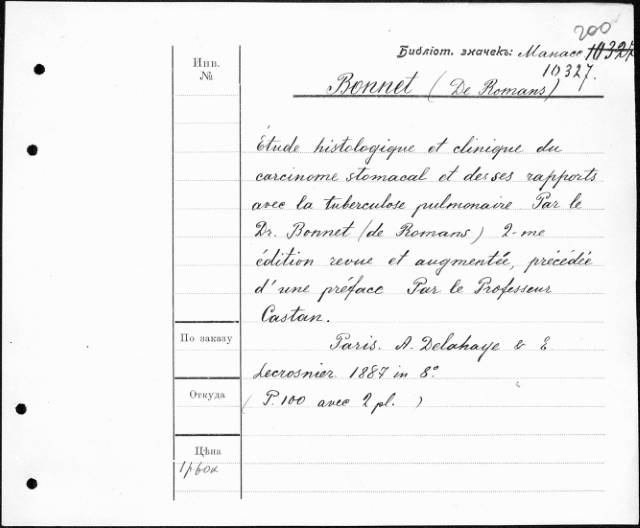 200
Библіот. значекъ: Манасс 10327
10327.
Инв.
№
Bonnet (De Romans)
Étude histologique et clinique du
carcinome stomacal et des ses rapports
avec la tuberculose pulmonaire Par le
Dr. Bonnet (de Romans) 2-me
édition revue et augmentée, précédée
d'une préface Par le Professeur
Castan.
По заказу
Paris. A. Delahaye & E
Lecrosnier 1887 in 8°
Откуда
(P. 100 avec 2 pl. )
Цѣна